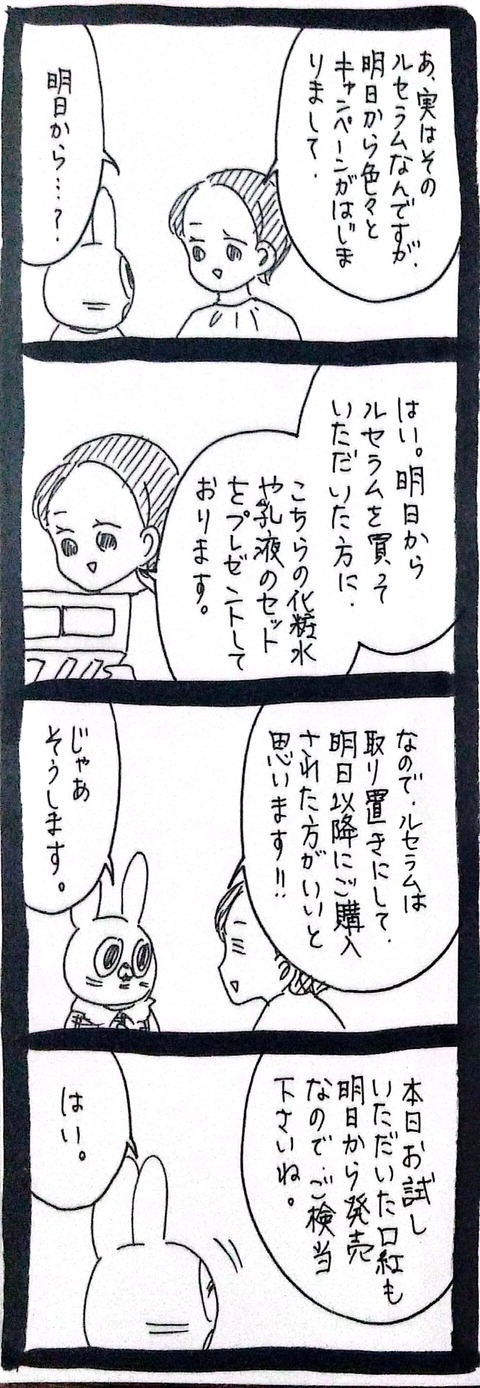 あ、実はその
ルセラムなんですが、
明日から色々と
キャンペーンがはじま
りまして、
明日から…？
はい。明日から
ルセラムを買って
いただいた方に、
こちらの化粧水
や乳液のセット
をプレゼントして
おります。
なので、ルセラムは
取り置きにして、
明日以降にご購入
された方がいいと
思います!!
じゃあ
そうします。
本日お試し
いただいた口紅も
明日から発売
なので、ご検当
下さいね。
はい。